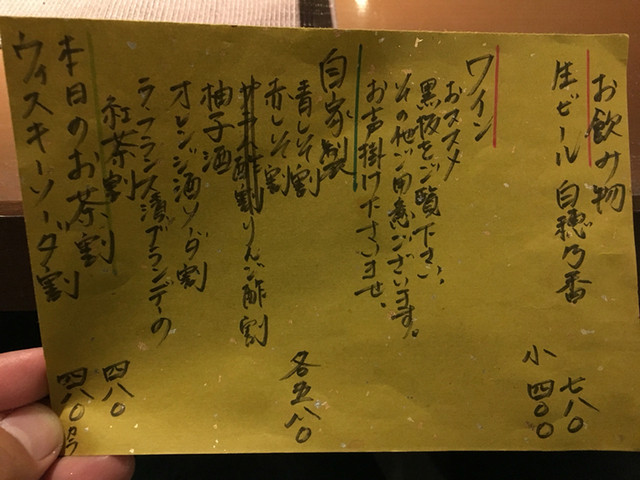 お飲み物
生ビール 白穂乃香 七八〇
小 四〇〇
ワイン
おススメ
黒板をご覧下さい。
その他ご用意ございます。
お声掛け下さいませ。
自家製 各五八〇
青しそ割
赤しそ割
りんご酢割
柚子酒
オレンジ酒ソーダ割
ラフランス漬ブランデーの
紅茶割
本日のお茶割 四八〇
ウィスキーソーダ割 四八〇から